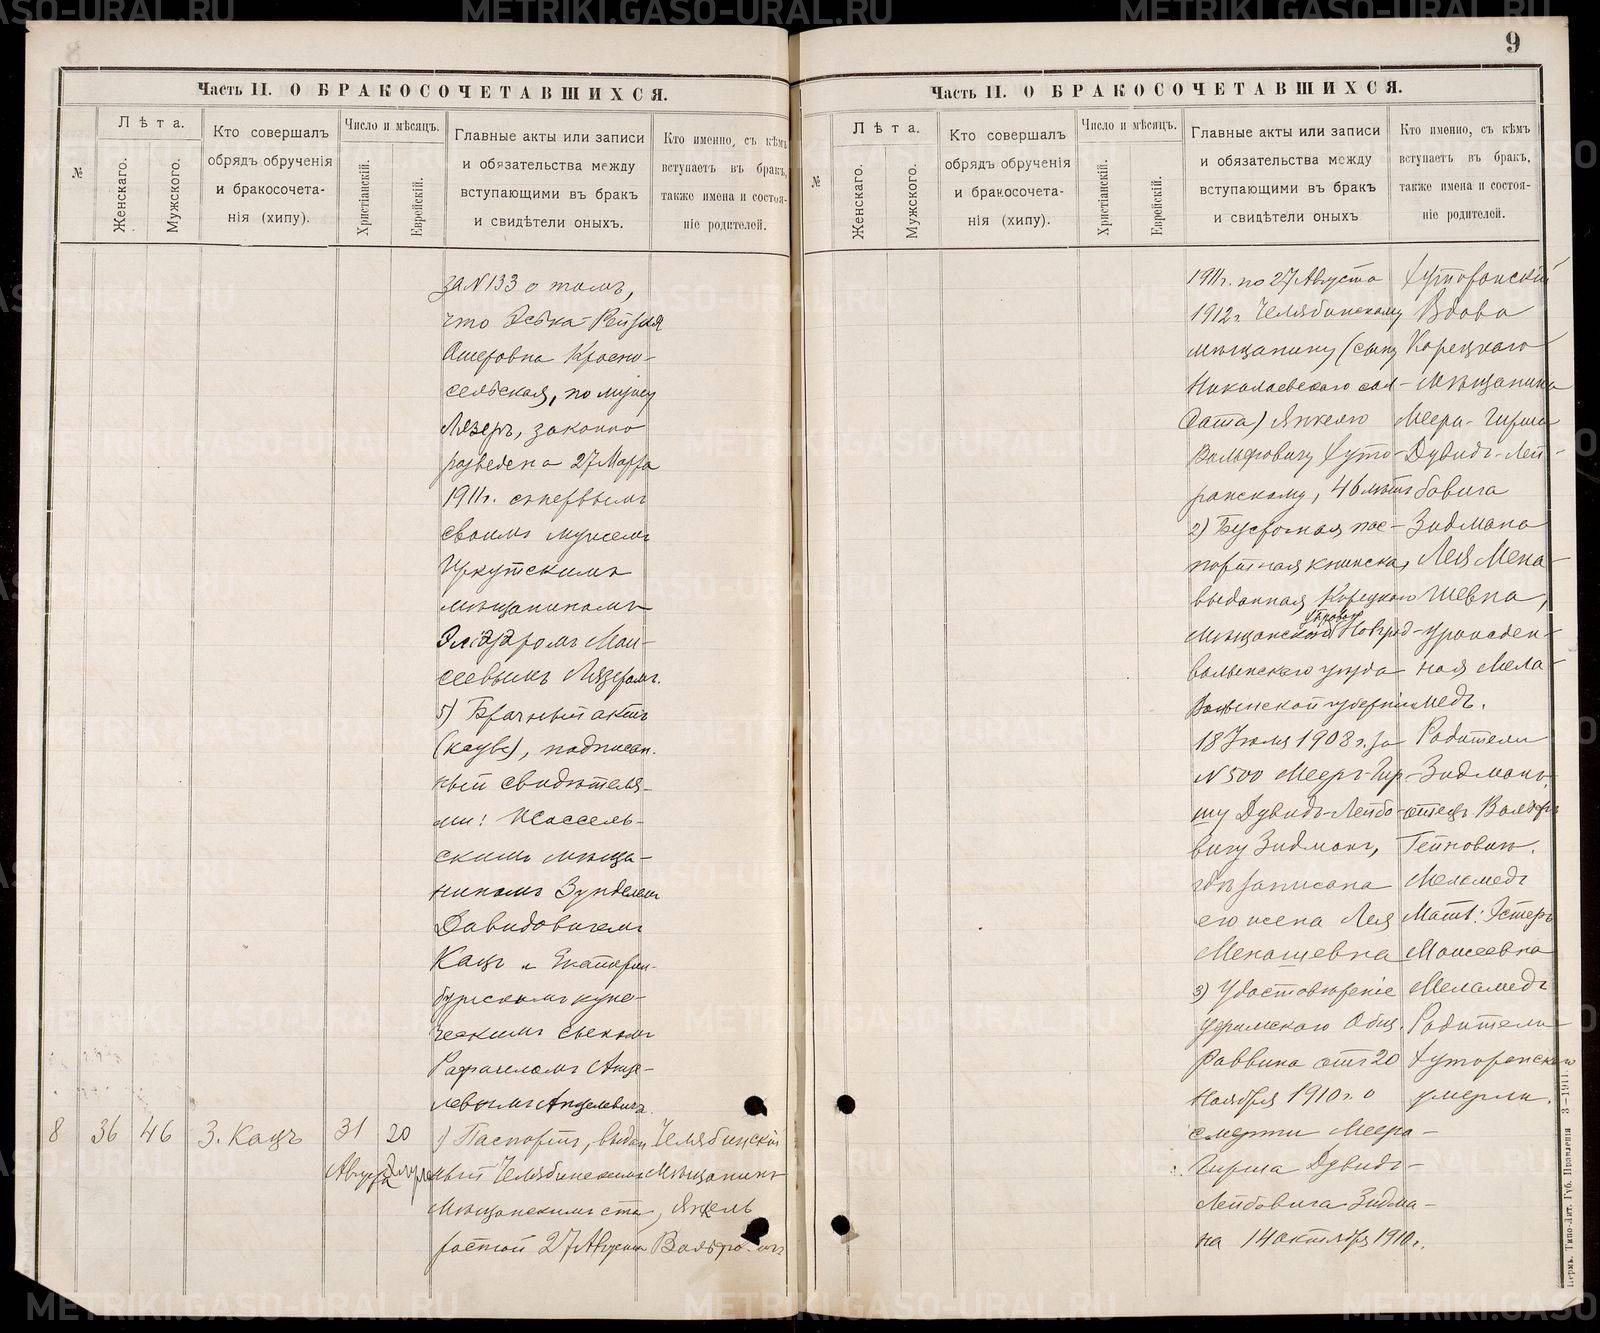 METRIKI.GASO-URAL.RU
METRIKI.GASO-URAL.RU
9
Часть II. О БРАКОСОЧЕТАВШИХСЯ.
№
Лѣта.
Женскаго.
Мужского.
Кто совершалъ
обрядъ обрученія
и бракосочета-
нія (хипу).
Число и мѣсяцъ.
Христіанскій.
Еврейскій.
Главные акты или записи
и обязательства между
вступающими въ бракъ
и свидѣтели оныхъ.
Кто именно, съ кѣмъ
вступаетъ въ бракъ,
также имена и состоя-
ніе родителей.
за N133 о томъ,
что Эська-Рейзля
Ошеровна Красно-
сельская, по мужу
Лязеръ, законно
разведена 27 Марта
1911 г. съ первымъ
своимъ мужемъ
Иркутскимъ
мѣщаниномъ
Эліазаромъ Мои-
сеевымъ Лязеромъ.
5) Брачный актъ
подписан-
ный свидѣтеля-
ми:
скимъ мѣща-
ниномъ Зунделемъ
Давидовичемъ
Кацъ и Екатерин-
бургскимъ купе-
ческимъ сыномъ
Рафаиломъ Анце-
левымъ Анцелевича.
8
36
46
З. Кацъ
31
Август
20
Элула
1) Паспортъ, выдан
ный Челябинскимъ
Мѣщанскимъ ста
ростой 27 Августа
Челябинскій
Мѣщанинъ
Янкель
Вольфовичъ
Часть II. О БРАКОСОЧЕТАВШИХСЯ.
№
Лѣта.
Женскаго.
Мужского.
Кто совершалъ
обрядъ обрученія
и бракосочета-
нія (хипу).
Число и мѣсяцъ.
Христіанскій.
Еврейскій.
Главные акты или записи
и обязательства между
вступающими въ бракъ
и свидѣтели оныхъ
Кто именно, съ кѣмъ
вступаетъ въ бракъ,
также имена и состоя-
ніе родителей.
1911 г. по 27 Августа
1912 г. Челябинскому
мѣщанину (сыну
Николаевского сол-
дата) Янкелю
Вольфовичу Хуто-
ранскому, 46 лѣтъ
2) Безсрочная пас-
портная книжка,
выданная Корецкого
Мѣщанской управой Новград-
волынскаго уѣзда
Волынской губерніи
18 Іюля 1908 г. за
N 500 Мееръ-Гир-
шу Дувидъ-Лейбо-
вичу Зидманъ,
гдѣ записана
его жена Лея
Менашевна
3) Удостовѣреніе
Уфимскаго Общ.
Раввина отъ 20
Ноября 1910 г. о
смерти Меера-
Гирша Дувидъ-
Лейбовича Зидма-
на 14 октября 1910 г.
Хуторанскій
Вдова
Корецкаго
мѣщанина
Меера-Гирша
Дувидъ-Лей-
бовича
Зидмана
Лея Мена-
шевна,
урожден-
ная Мела-
медъ.
Родители
Зидманъ:
отецъ Вольфъ
Гейновичъ
Меламедъ
Мать: Эстеръ
Моисеевна
Меламедъ
Родители
Хуторанскаго
умерли.
Пермь. Типо-Лит. Губ. Правленія 3—1911.
METRIKI.GASO-URAL.RU
METRIKI.GASO-URAL.RU